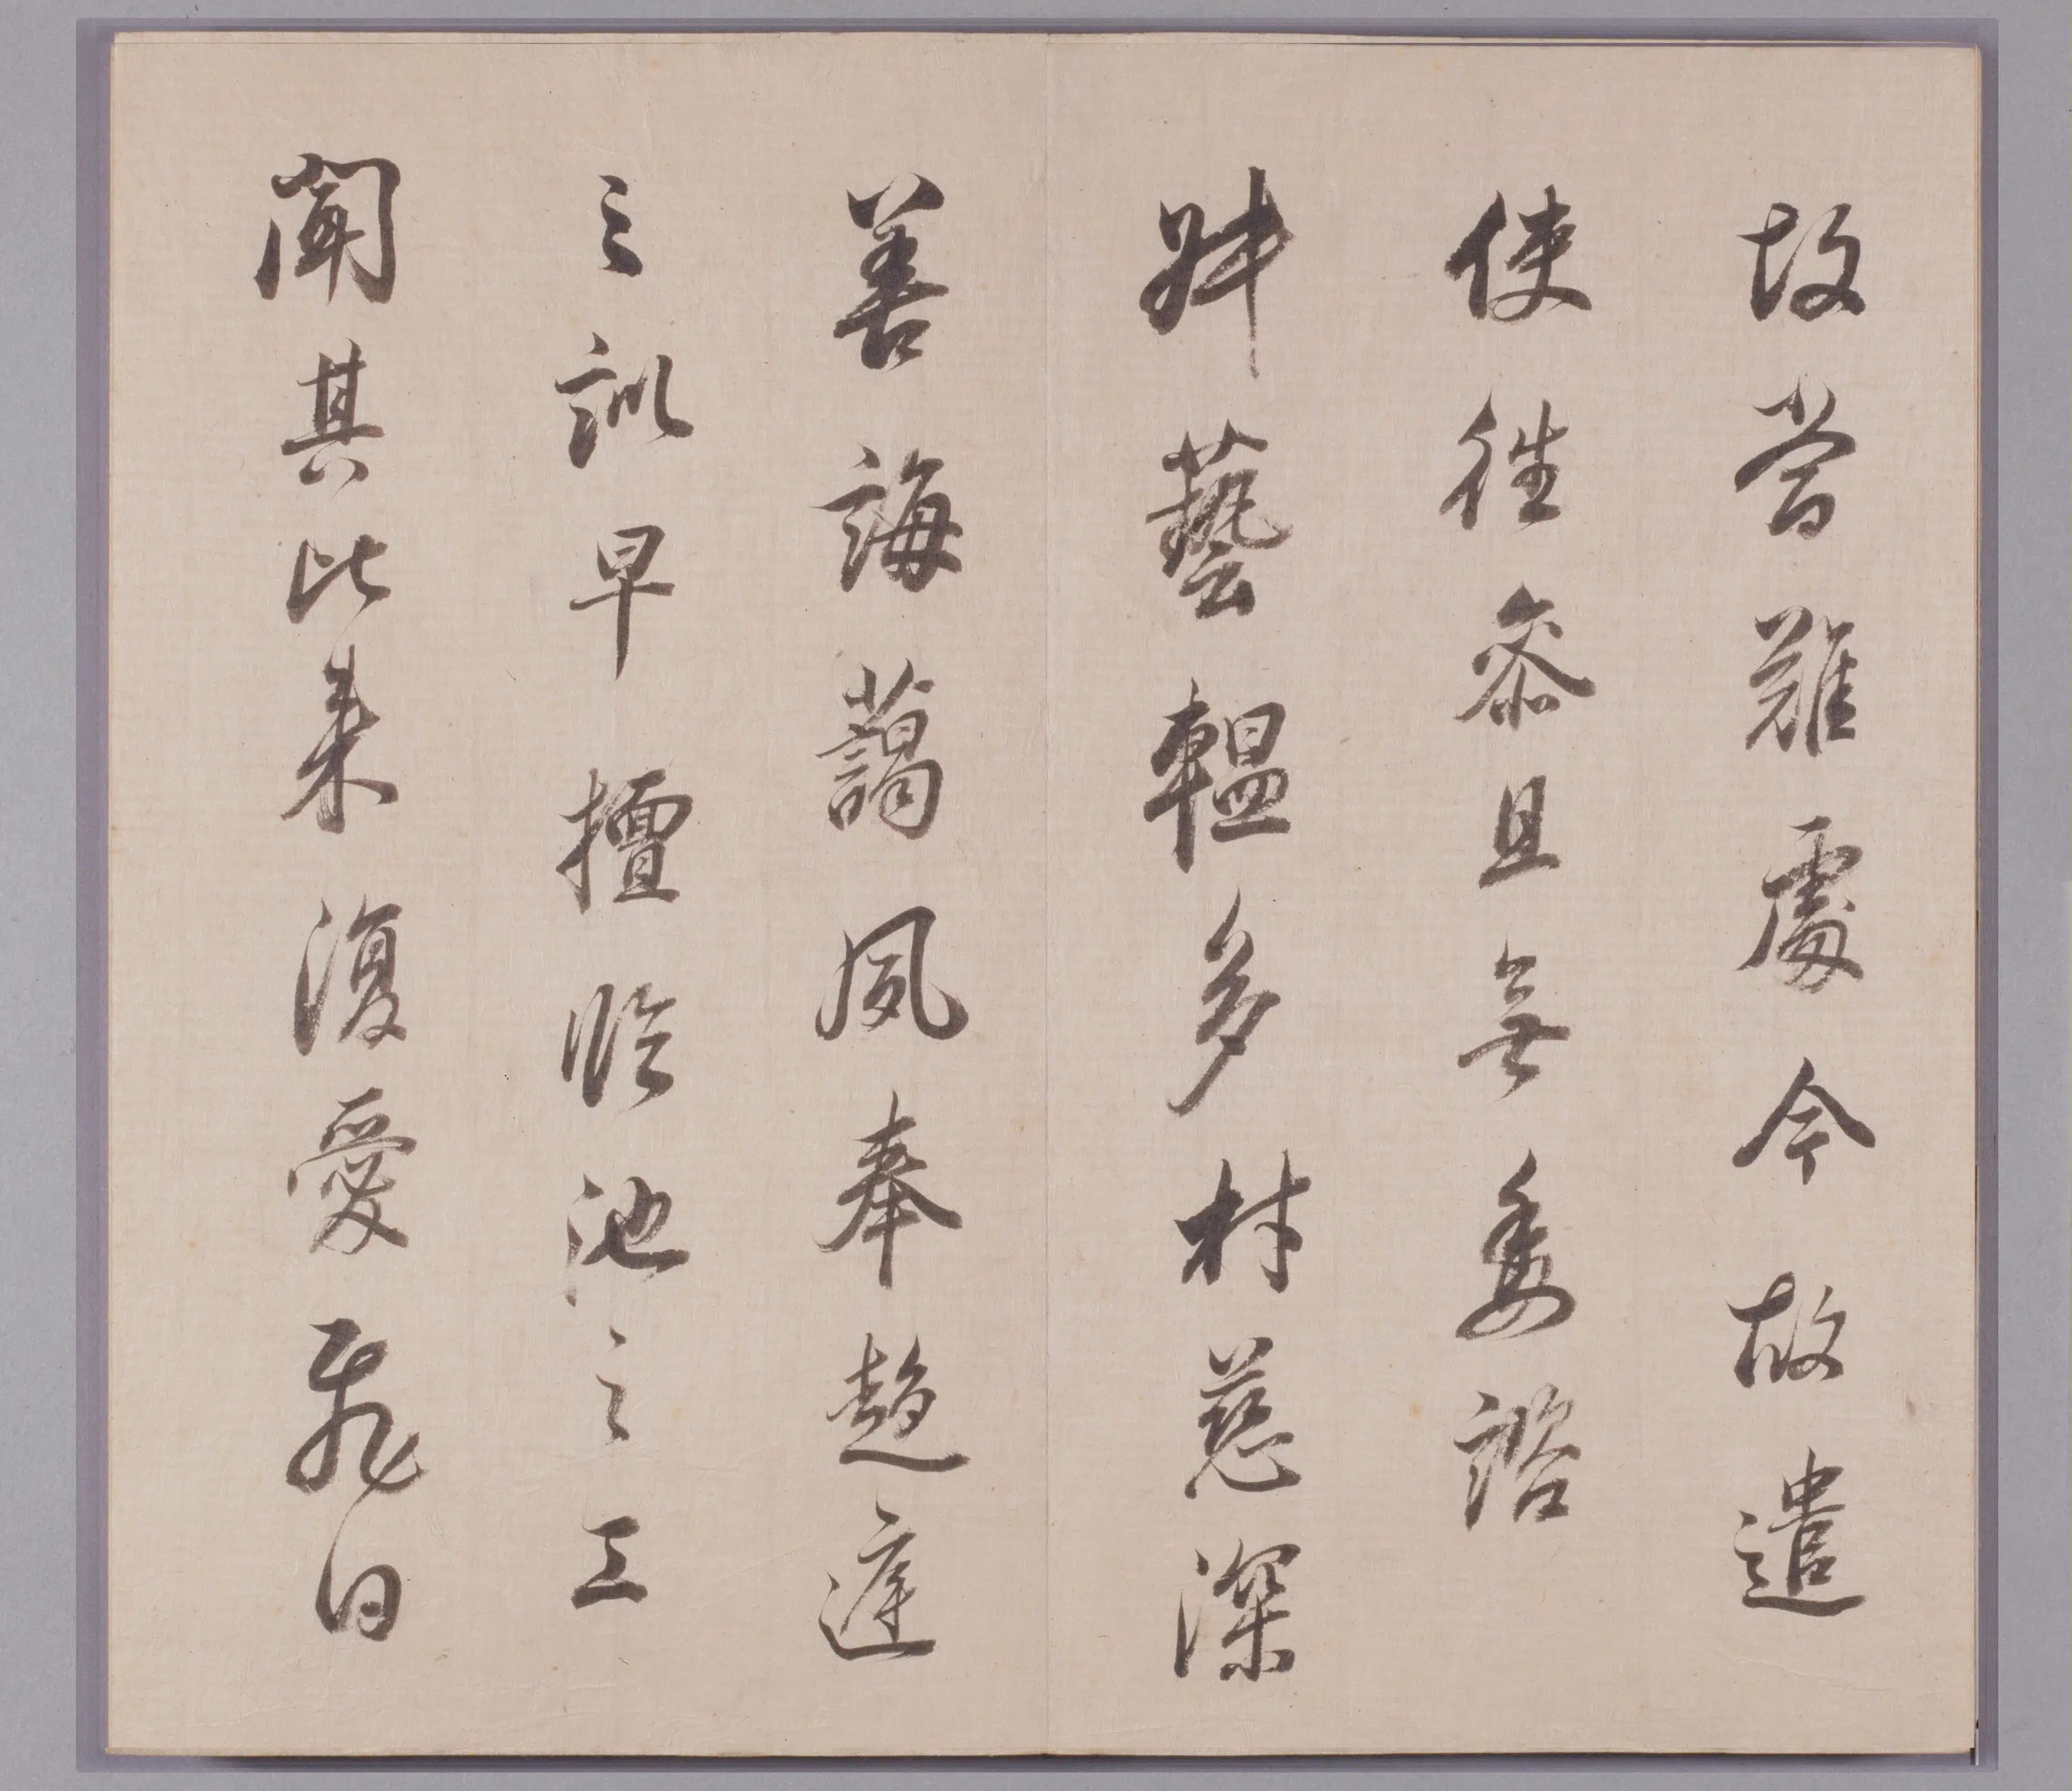 故嘗難處今故遣
使往叅且無委諮
藝韞多材慈深
善誨藹夙奉趍庭
之訓早擅臨池之工
聞其比来復愛飛白